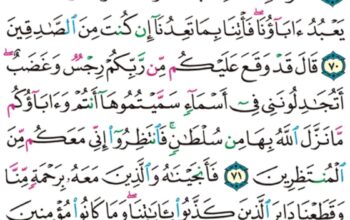 يَعۡبُدُ ءَابَآؤُنَا فَأۡتِنَا بِمَا تَعِدُنَآ إِن كُنتَ مِنَ ٱلصَّٰدِقِينَ
٧٠ قَالَ قَدۡ وَقَعَ عَلَيۡكُم مِّن رَّبِّكُمۡ رِجۡسٞ وَغَضَبٌۖ
أَتُجَٰدِلُونَنِي فِيٓ أَسۡمَآءٖ سَمَّيۡتُمُوهَآ أَنتُمۡ وَءَابَآؤُكُم
مَّا نَزَّلَ ٱللَّهُ بِهَا مِن سُلۡطَٰنٖۚ فَٱنتَظِرُوٓاْ إِنِّي مَعَكُم مِّنَ
ٱلۡمُنتَظِرِينَ ٧١ فَأَنجَيۡنَٰهُ وَٱلَّذِينَ مَعَهُۥ بِرَحۡمَةٖ مِّنَّا
وَقَطَعۡنَا دَابِرَ ٱلَّذِينَ كَذَّبُواْ بِـَٔايَٰتِنَاۖ وَمَا كَانُواْ مُؤۡمِنِينَ